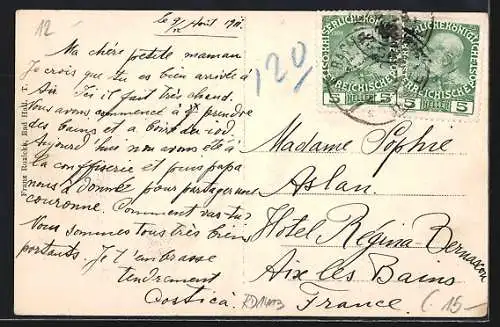 12
le 9/ Août 1911.
Ma chère petite maman
Je crois que tu es bien arrivée à
Aix. Ici il fait très chaud.
Nous avons commencé à prendre
des bains et a boire du iod.
Aujourd'hui nous avons été à
la confiserie et puis papa
nous a donné pour partager une
couronne. Comment vas-tu?
Nous sommes tous très bien
portants. Je t'embrasse
tendrement
Costica.
Franz Ruzicka, Bad Hall. T.
120
KAISERLICHE KÖNIGLICHE
ÖSTERREICHISCHE POST
5 HELLER 5
KAISERLICHE KÖNIGLICHE
ÖSTERREICHISCHE POST
5 HELLER 5
Madame Sophie
Aslan.
Hôtel Regina-Bernascon
Aix les Bains
France.
15-